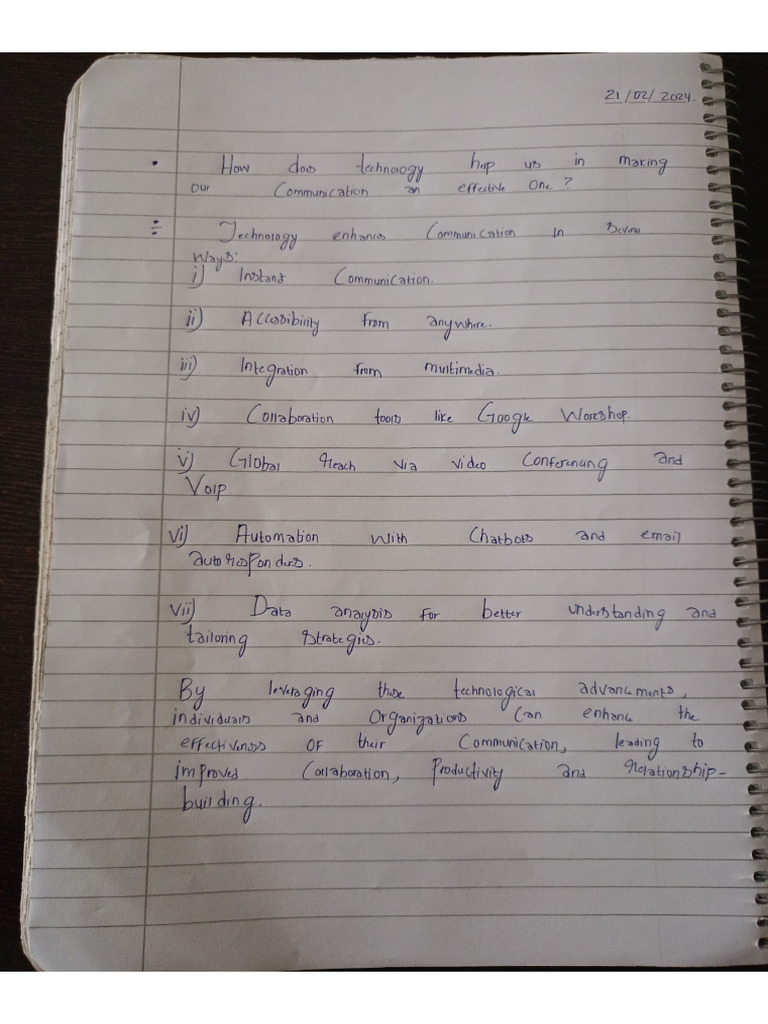 21/02/2024.
• How does technology help us in making
our Communication an effective One?
÷ Technology enhances Communication in Several
Ways:
i) Instant Communication.
ii) Accessibility from anywhere.
iii) Integration from multimedia.
iv) Collaboration tools like Google Workshop.
v) Global reach via video Conferencing and
Voip.
vi) Automation with Chatbots and email
autoresponders.
vii) Data analysis for better understanding and
tailoring strategies.
By leveraging these technological advancements,
individuals and organizations can enhance the
effectiveness of their Communication, leading to
improved Collaboration, Productivity and relationship-
building.